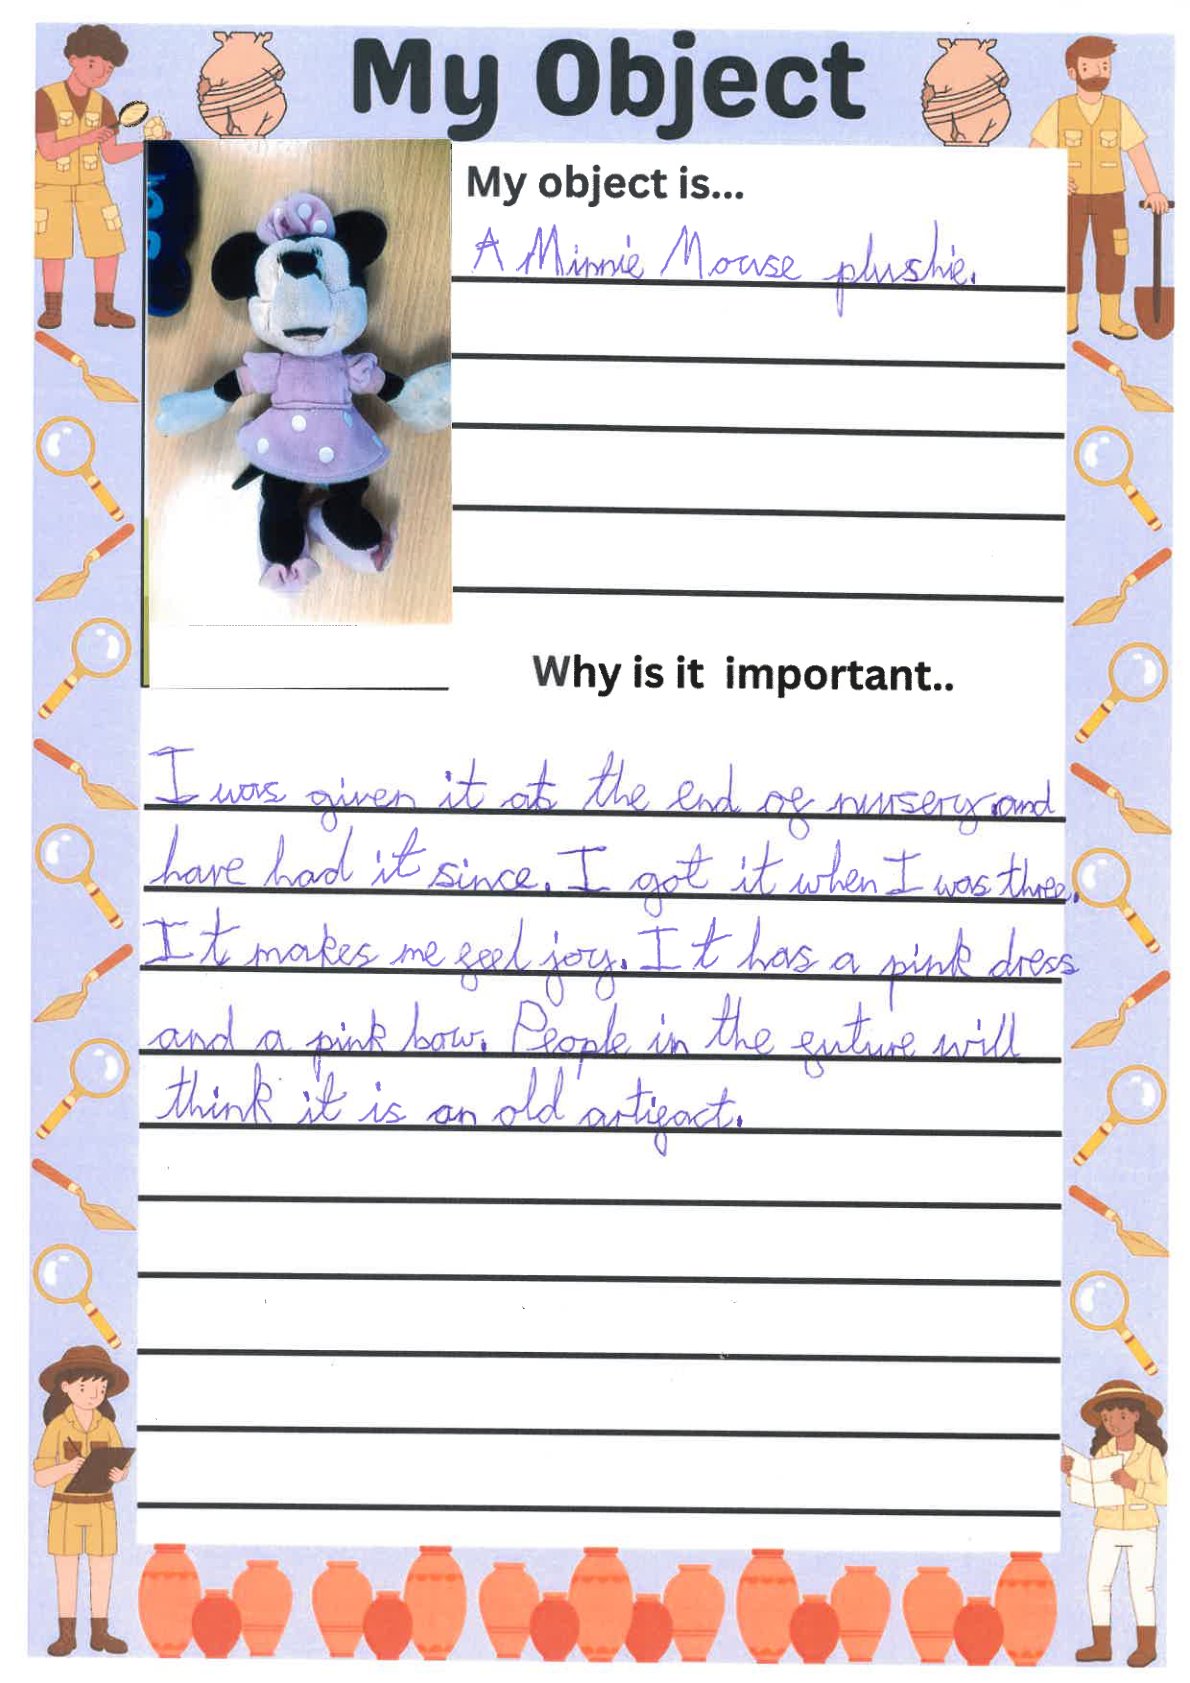 My Object
My object is...
A Minnie Mouse plushie.
Why is it important..
I was given it at the end of nursery and
have had it since. I got it when I was three.
It makes me feel joy. It has a pink dress
and a pink bow. People in the future will
think it is an old artifact.